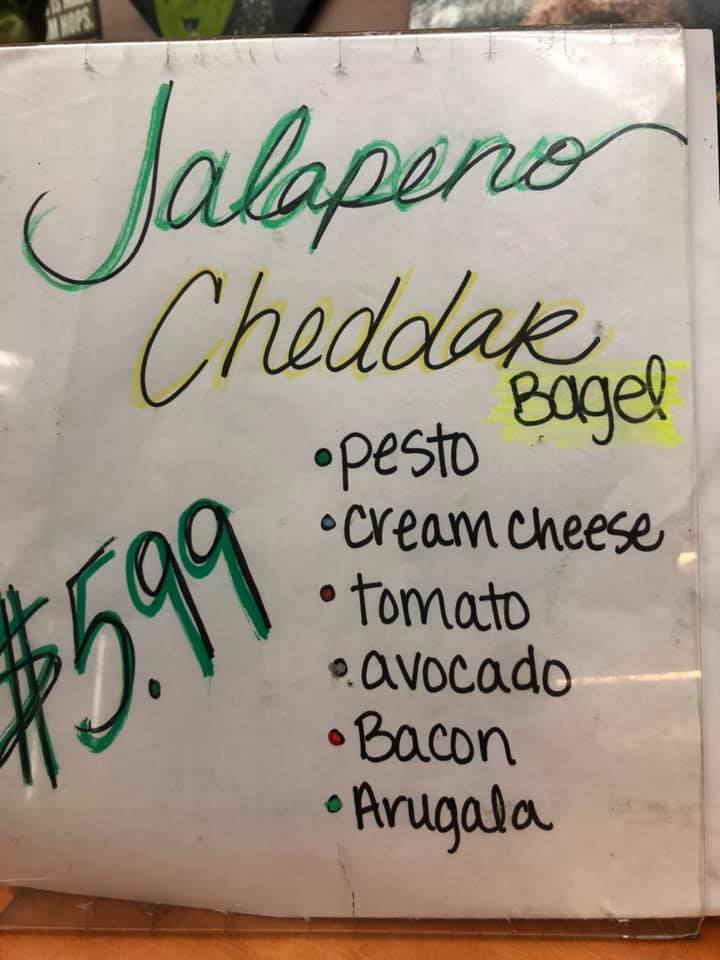 N HOPS.
Jalapeno
Cheddar
Bagel
•pesto
•cream cheese
•tomato
•avocado
•Bacon
•Arugala
$5.99